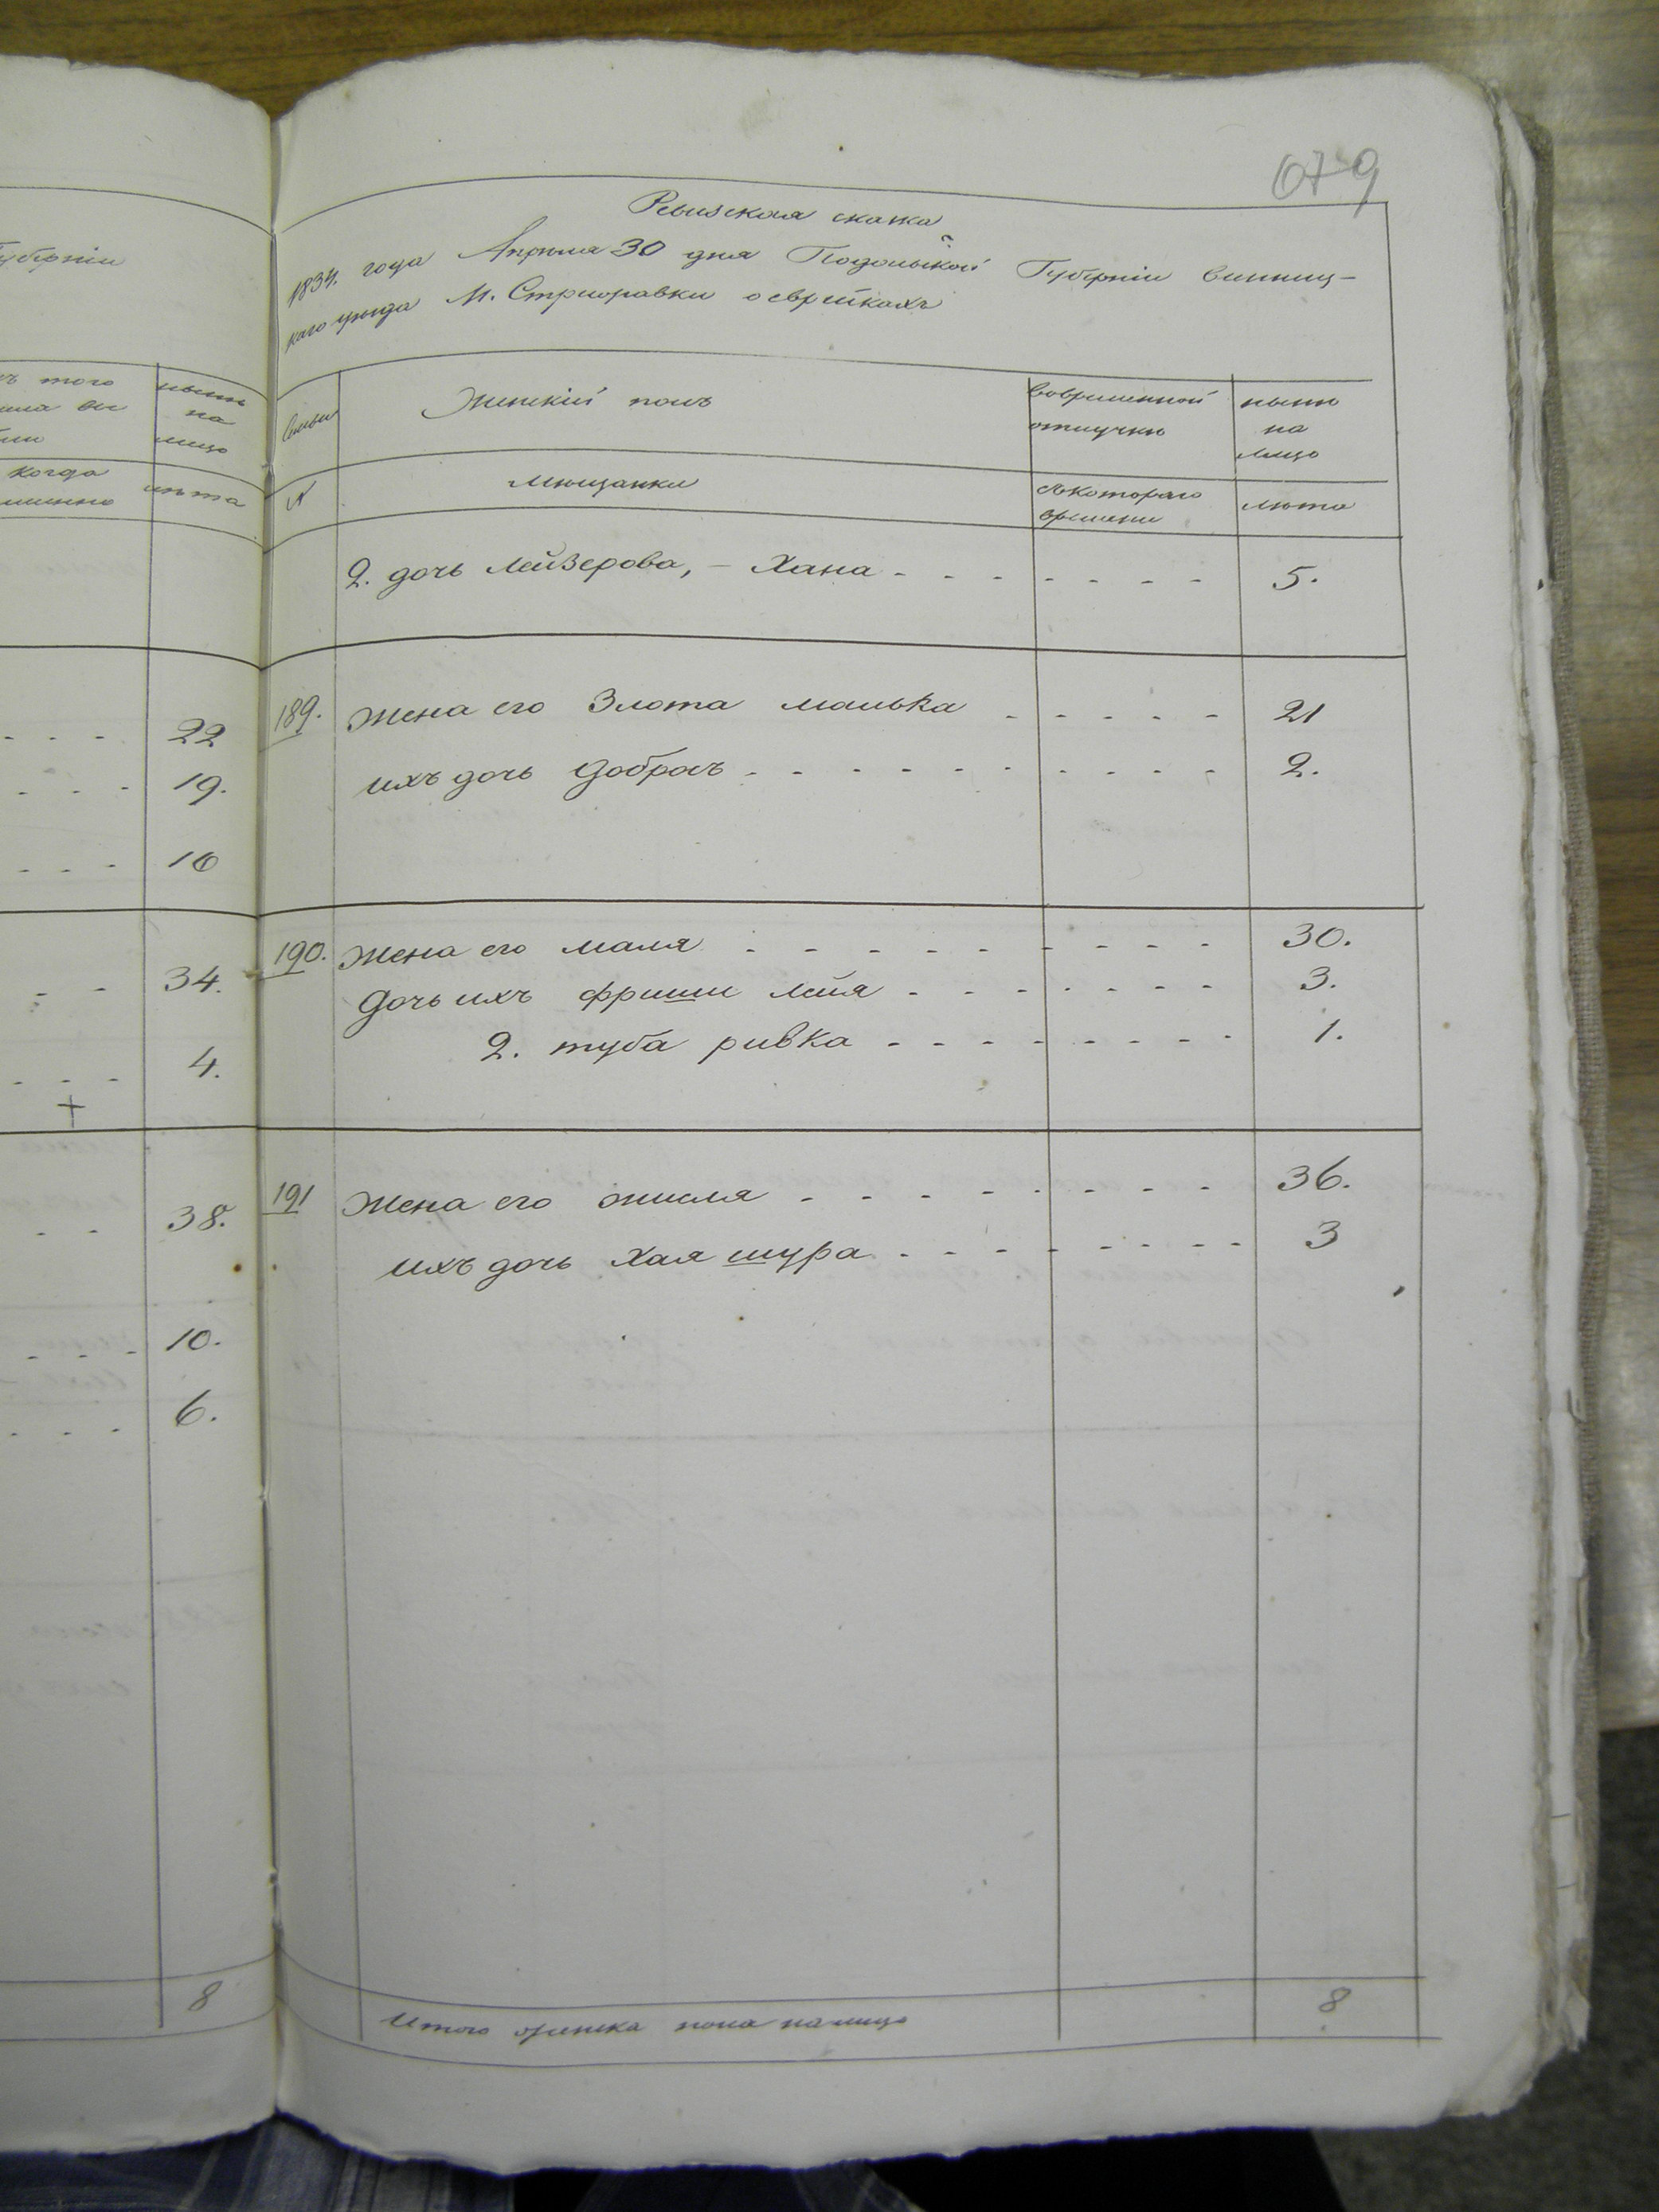 Губерніи
того
когда
нынѣ
на
лицо
лѣта
22
19.
16
34.
4.
+
38.
10.
6.
8
679
Ревизская сказка
1834. года Апрѣля 30 дня Подольской Губерніи Винниц-
каго уѣзда М. Стрижавки о еврейкахъ
Семьи
Женскій полъ
Во временной
отлучкѣ
нынѣ
на
лицо
№
Мѣщанки
съ котораго
времени
лѣта
2. дочь Лейзерова, - Хана - - - - - - - 5.
189. Жена его Злота малька - - - - - 21
ихъ дочь Добрась - - - - - - - - - - 2.
190. Жена его маля - - - - - - - - - 30.
Дочь ихъ фриши лея - - - - - - - 3.
2. туба ривка - - - - - - - - 1.
191 Жена его тисля - - - - - - - - 36.
ихъ дочь Хая шура - - - - - - - - 3
Итого женска пола налицо 8